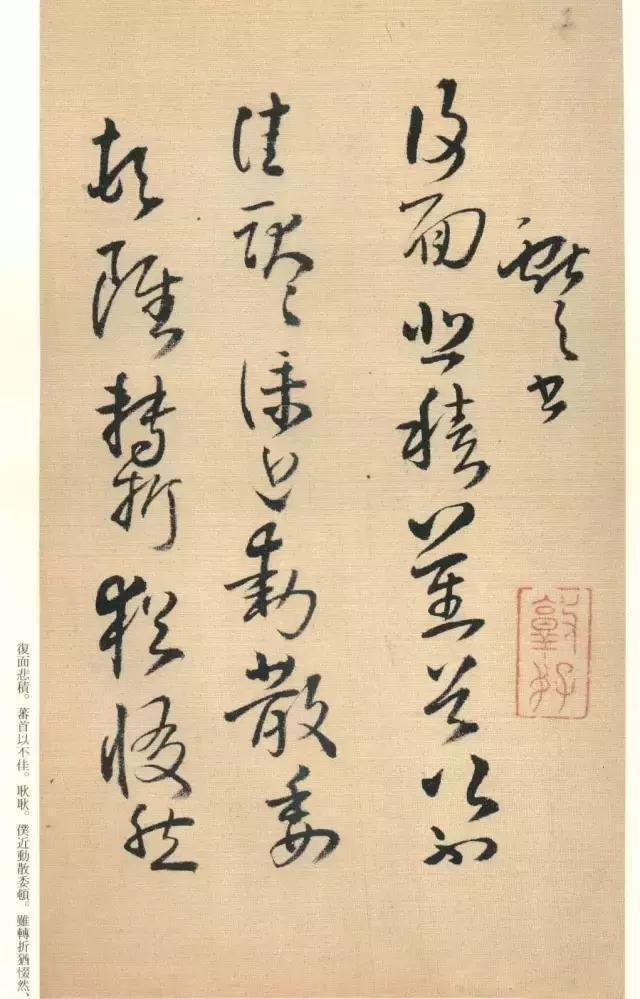 獻之書
復面悲積蕃首以不
佳耿耿僕近動散委
頓雖轉折猶惙然
復面悲積。蕃首以不佳。耿耿。僕近動散委頓。雖轉折猶惙然、